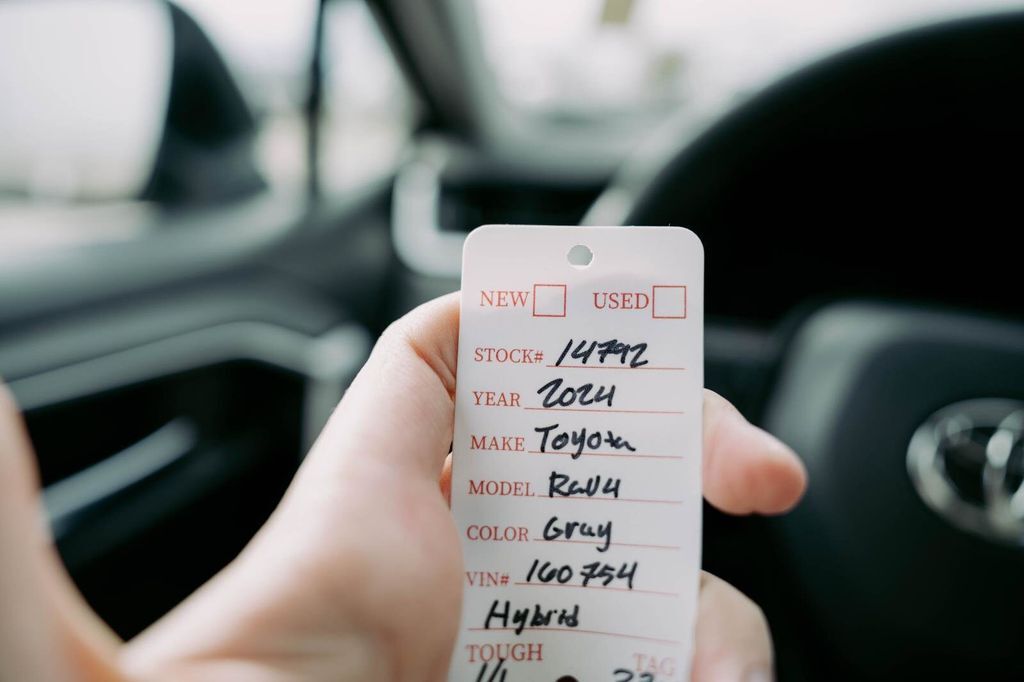 NEW USED
STOCK# 14792
YEAR 2024
MAKE Toyota
MODEL Rav4
COLOR Gray
VIN# 160754
Hybrid
TOUGH TAG